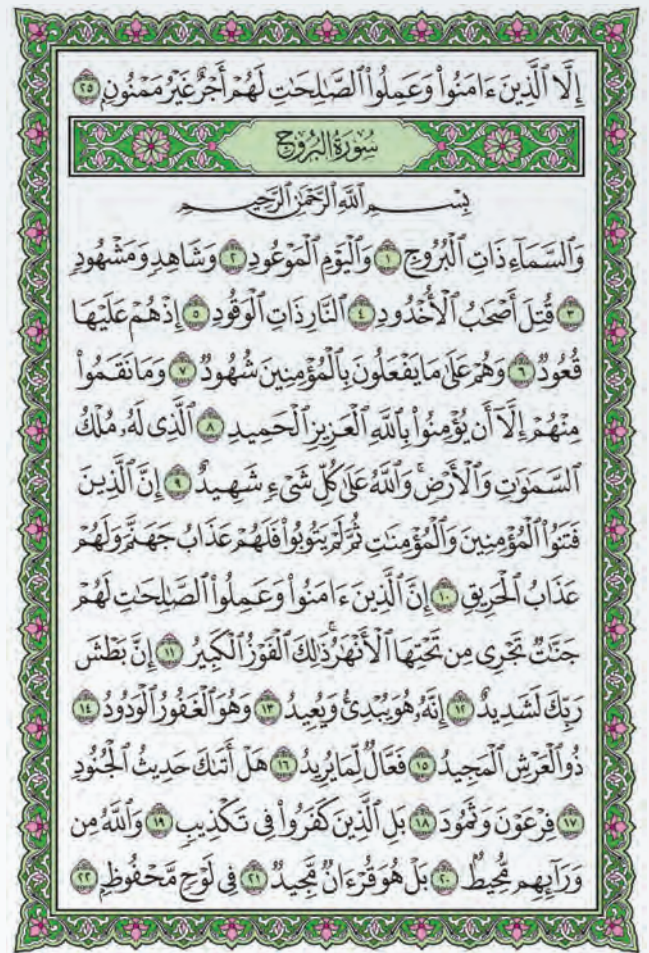 إِلَّا ٱلَّذِينَ ءَامَنُوا۟ وَعَمِلُوا۟ ٱلصَّـٰلِحَـٰتِ لَهُمْ أَجْرٌ غَيْرُ مَمْنُونٍۭ ٢٥
سُورَةُ البُرُوجِ
بِسْمِ ٱللَّهِ ٱلرَّحْمَـٰنِ ٱلرَّحِيمِ
وَٱلسَّمَآءِ ذَاتِ ٱلْبُرُوجِ ١ وَٱلْيَوْمِ ٱلْمَوْعُودِ ٢ وَشَاهِدٍ وَمَشْهُودٍ
٣ قُتِلَ أَصْحَـٰبُ ٱلْأُخْدُودِ ٤ ٱلنَّارِ ذَاتِ ٱلْوَقُودِ ٥ إِذْ هُمْ عَلَيْهَا
قُعُودٌ ٦ وَهُمْ عَلَىٰ مَا يَفْعَلُونَ بِٱلْمُؤْمِنِينَ شُهُودٌ ٧ وَمَا نَقَمُوا۟
مِنْهُمْ إِلَّآ أَن يُؤْمِنُوا۟ بِٱللَّهِ ٱلْعَزِيزِ ٱلْحَمِيدِ ٨ ٱلَّذِى لَهُۥ مُلْكُ
ٱلسَّمَـٰوَٰتِ وَٱلْأَرْضِ ۚ وَٱللَّهُ عَلَىٰ كُلِّ شَىْءٍ شَهِيدٌ ٩ إِنَّ ٱلَّذِينَ
فَتَنُوا۟ ٱلْمُؤْمِنِينَ وَٱلْمُؤْمِنَـٰتِ ثُمَّ لَمْ يَتُوبُوا۟ فَلَهُمْ عَذَابُ جَهَنَّمَ وَلَهُمْ
عَذَابُ ٱلْحَرِيقِ ١٠ إِنَّ ٱلَّذِينَ ءَامَنُوا۟ وَعَمِلُوا۟ ٱلصَّـٰلِحَـٰتِ لَهُمْ
جَنَّـٰتٌ تَجْرِى مِن تَحْتِهَا ٱلْأَنْهَـٰرُ ۚ ذَٰلِكَ ٱلْفَوْزُ ٱلْكَبِيرُ ١١ إِنَّ بَطْشَ
رَبِّكَ لَشَدِيدٌ ١٢ إِنَّهُۥ هُوَ يُبْدِئُ وَيُعِيدُ ١٣ وَهُوَ ٱلْغَفُورُ ٱلْوَدُودُ ١٤
ذُو ٱلْعَرْشِ ٱلْمَجِيدُ ١٥ فَعَّالٌ لِّمَا يُرِيدُ ١٦ هَلْ أَتَىٰكَ حَدِيثُ ٱلْجُنُودِ
١٧ فِرْعَوْنَ وَثَمُودَ ١٨ بَلِ ٱلَّذِينَ كَفَرُوا۟ فِى تَكْذِيبٍ ١٩ وَٱللَّهُ مِن
وَرَآئِهِم مُّحِيطٌۢ ٢٠ بَلْ هُوَ قُرْءَانٌ مَّجِيدٌ ٢١ فِى لَوْحٍ مَّحْفُوظٍۭ ٢٢